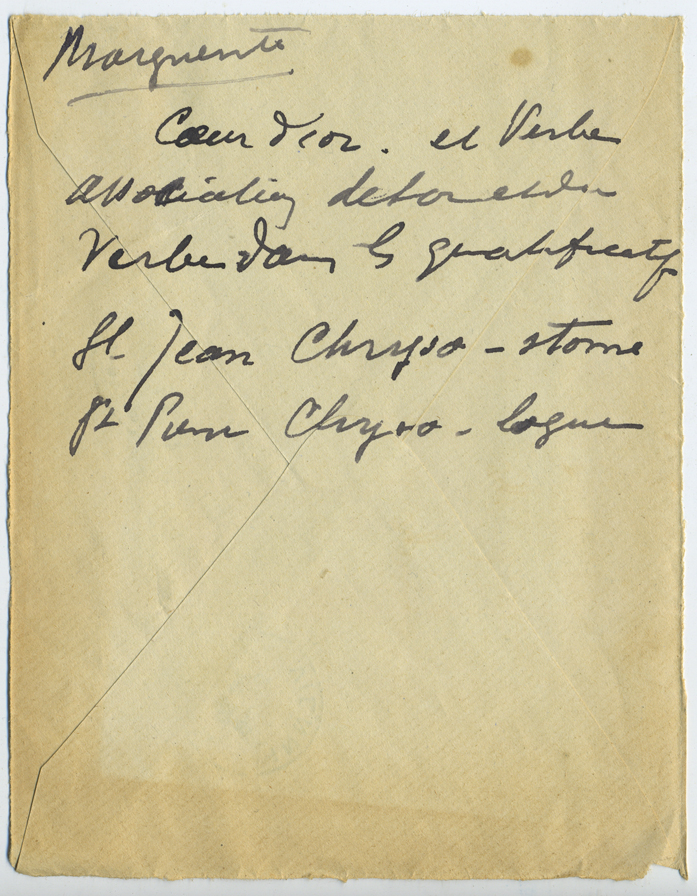 Marguerite
Cœur d'or. et Verbe
association de l'or et du
Verbe dans les qualificatifs
St Jean Chryso - stome
St Pierre Chryso - logue